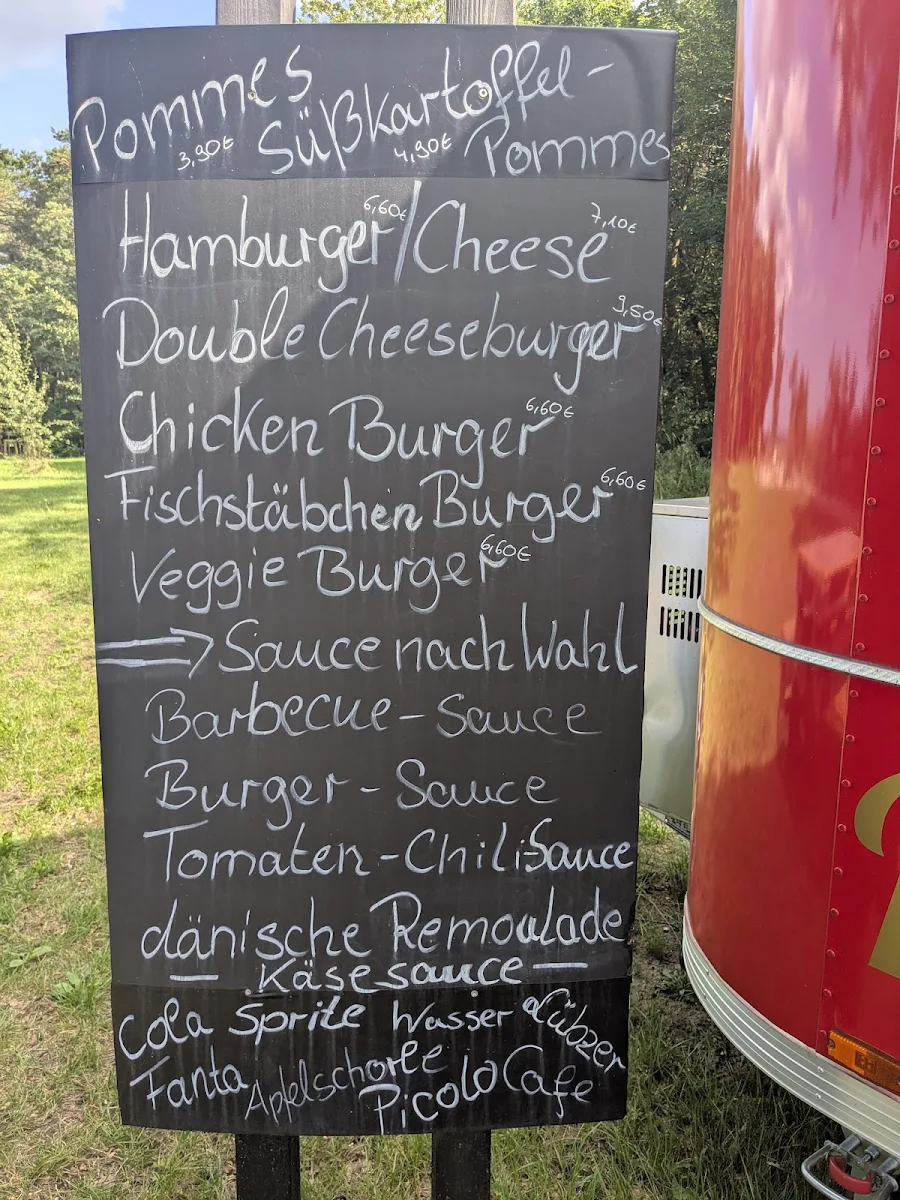 Pommes 3,90€ Süßkartoffel-
4,90€ Pommes
Hamburger 6,60€ / Cheese 7,10€
Double Cheeseburger 9,50€
Chicken Burger 6,60€
Fischstäbchen Burger 6,60€
Veggie Burger 6,60€
⇒ Sauce nach Wahl
Barbecue - Sauce
Burger - Sauce
Tomaten - Chili-Sauce
dänische Remoulade
— Käsesauce —
Cola Sprite Wasser Lübzer
Fanta Apfelschorle Picolo Cafe